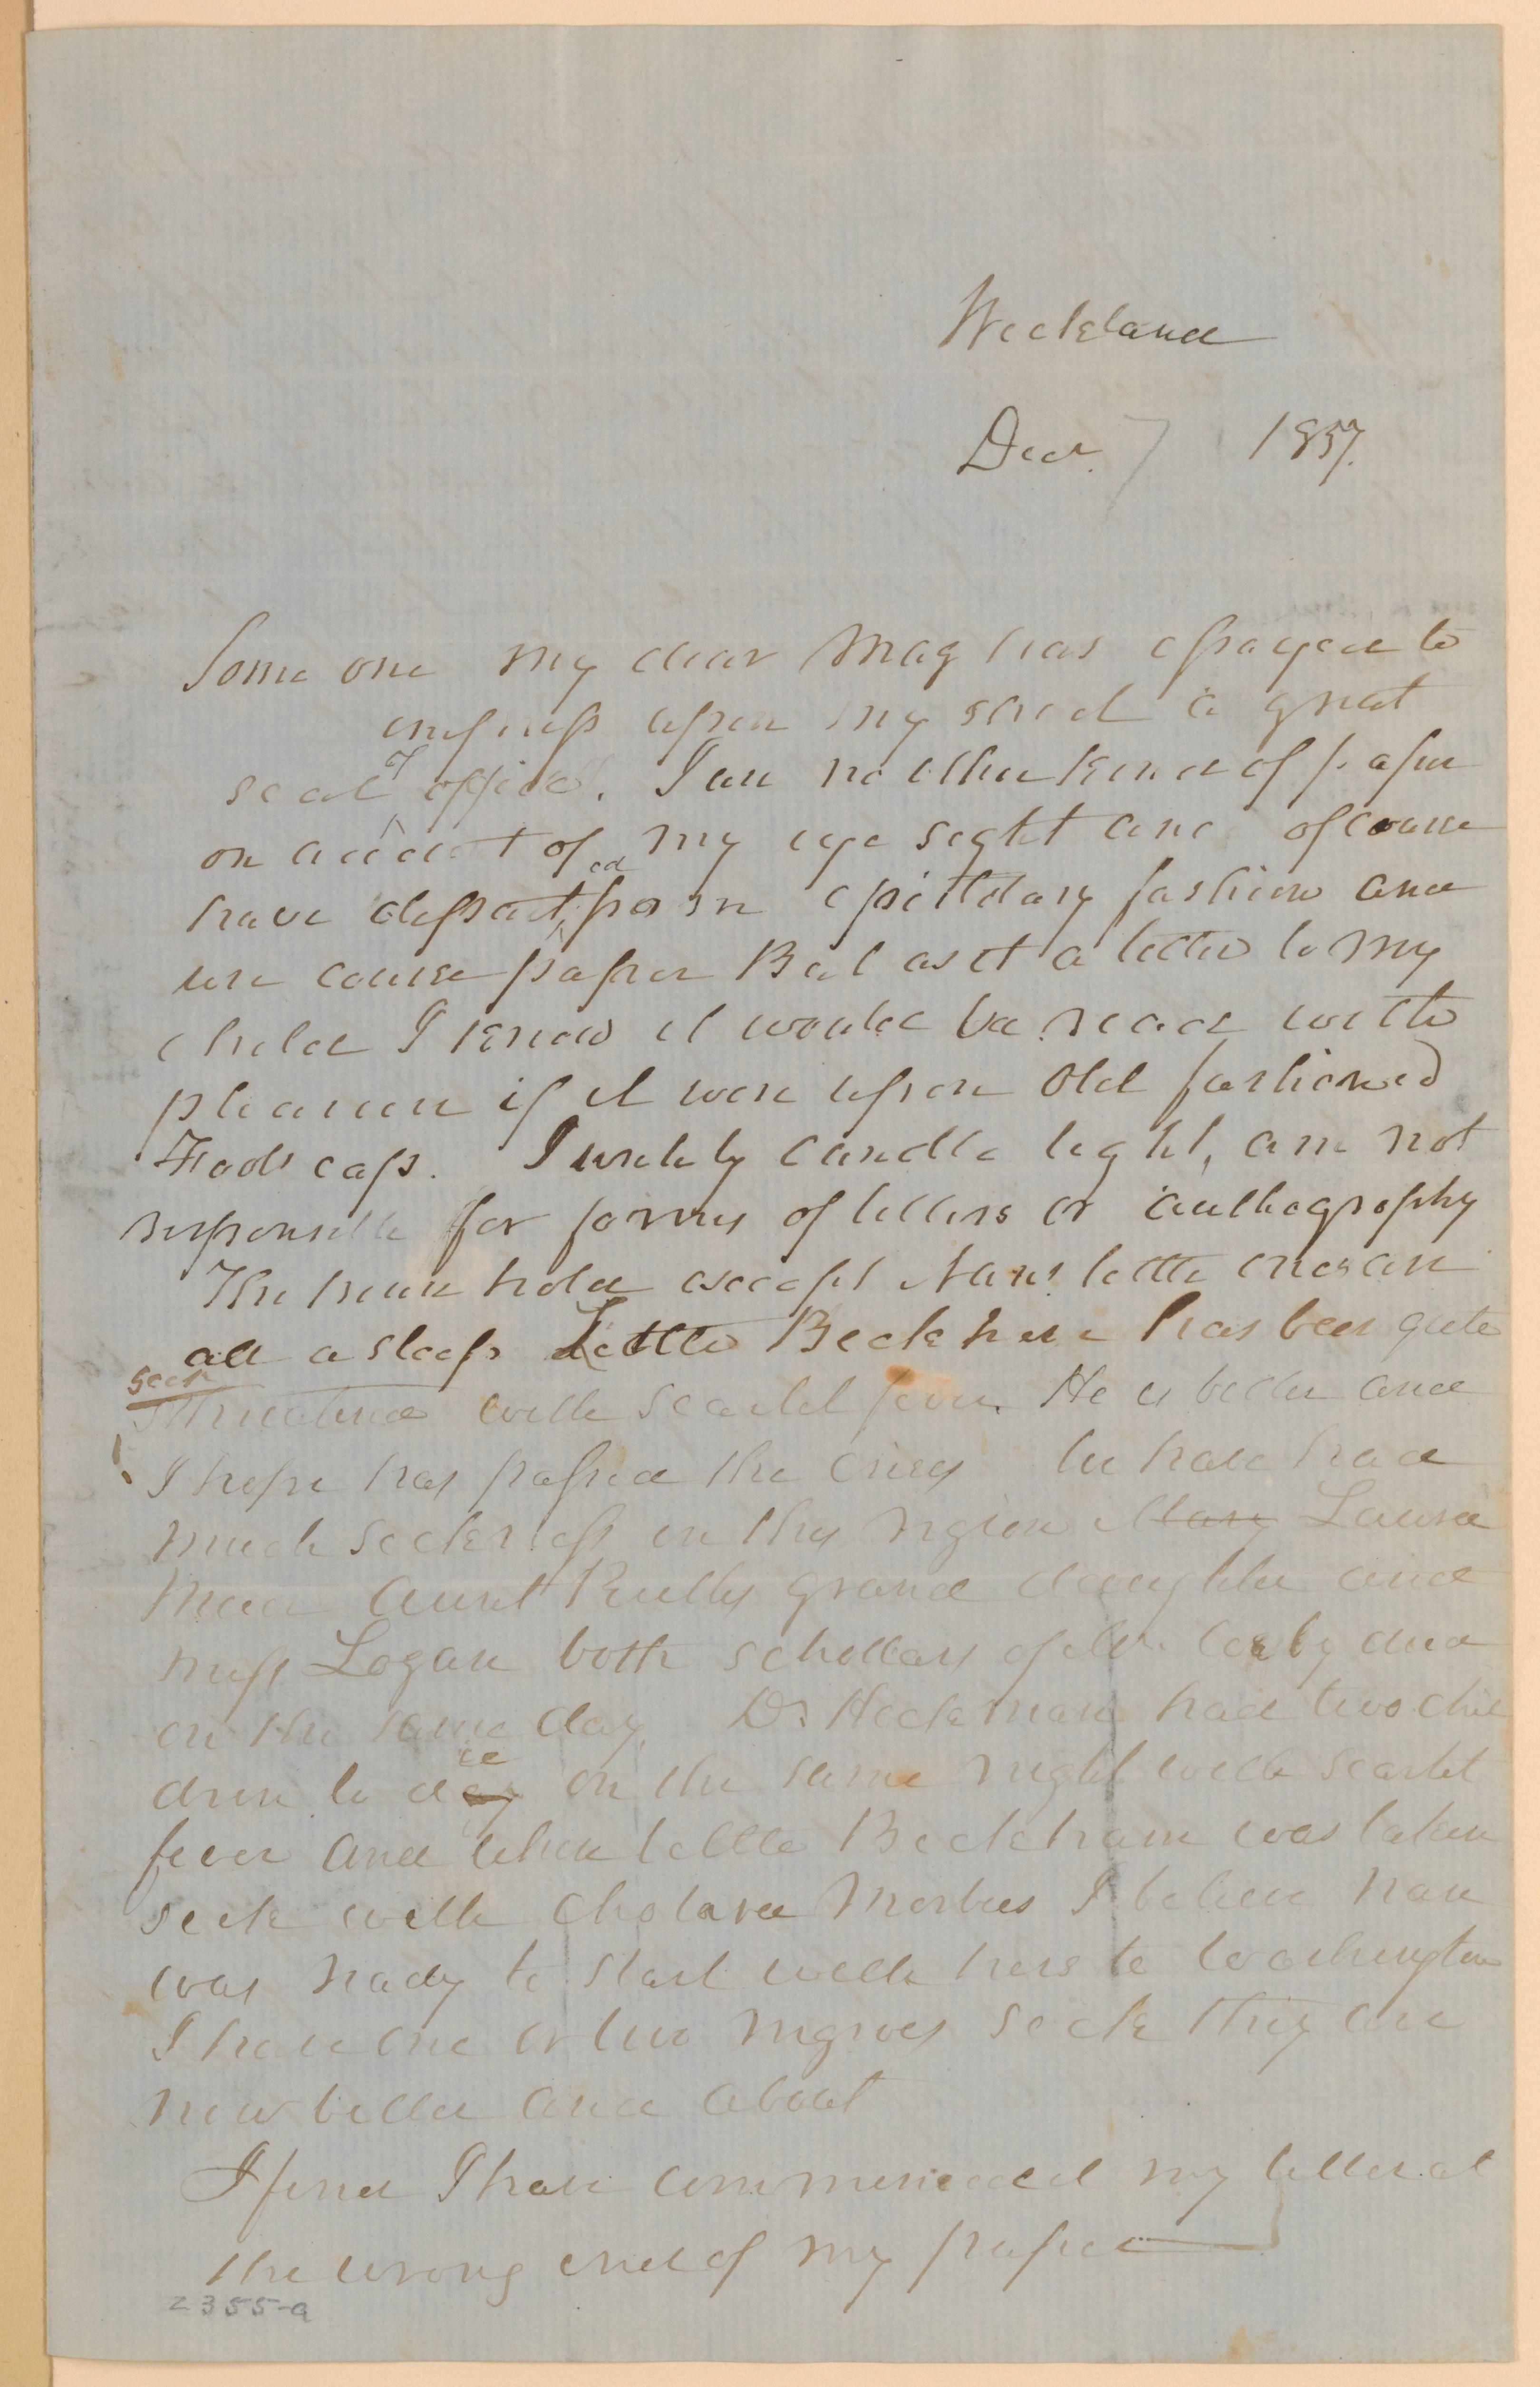 Wickland
Decr. 7 1857.
Some one my dear Mag has essayed to
impress upon my sheet a great
seal of office. I use no other kind of paper
on account of my eye sight and of course
have departed from epistolary fashion and
use coarse paper But as it a letter to my
child I know it would be read with
pleasure if it were upon Old fashioned
Fools cap. I write by candle light, am not
responsible for forms of letters or authography
The house hold except Nan's little ones are
all a sleep Little Beckham has been quite
sick
threatened with scarlet fever. He is better and
I hope has passed the crisis We have had
much sickness in this region Mary Laura
Muir Aunt Ruth's grand daughter and
miss Logan both schollars of Mr. Cosby died
on the same day. Dr. Hickman had two chil
dren to die on the same night with scarlet
fever and when little Beckham was taken
sick with cholera Morbus I believe Nan
was ready to start with hers to Washington
I have one or two negroes sick they are
now better and about
I find I have commenced my letter at
the wrong end of my paper
2355-a